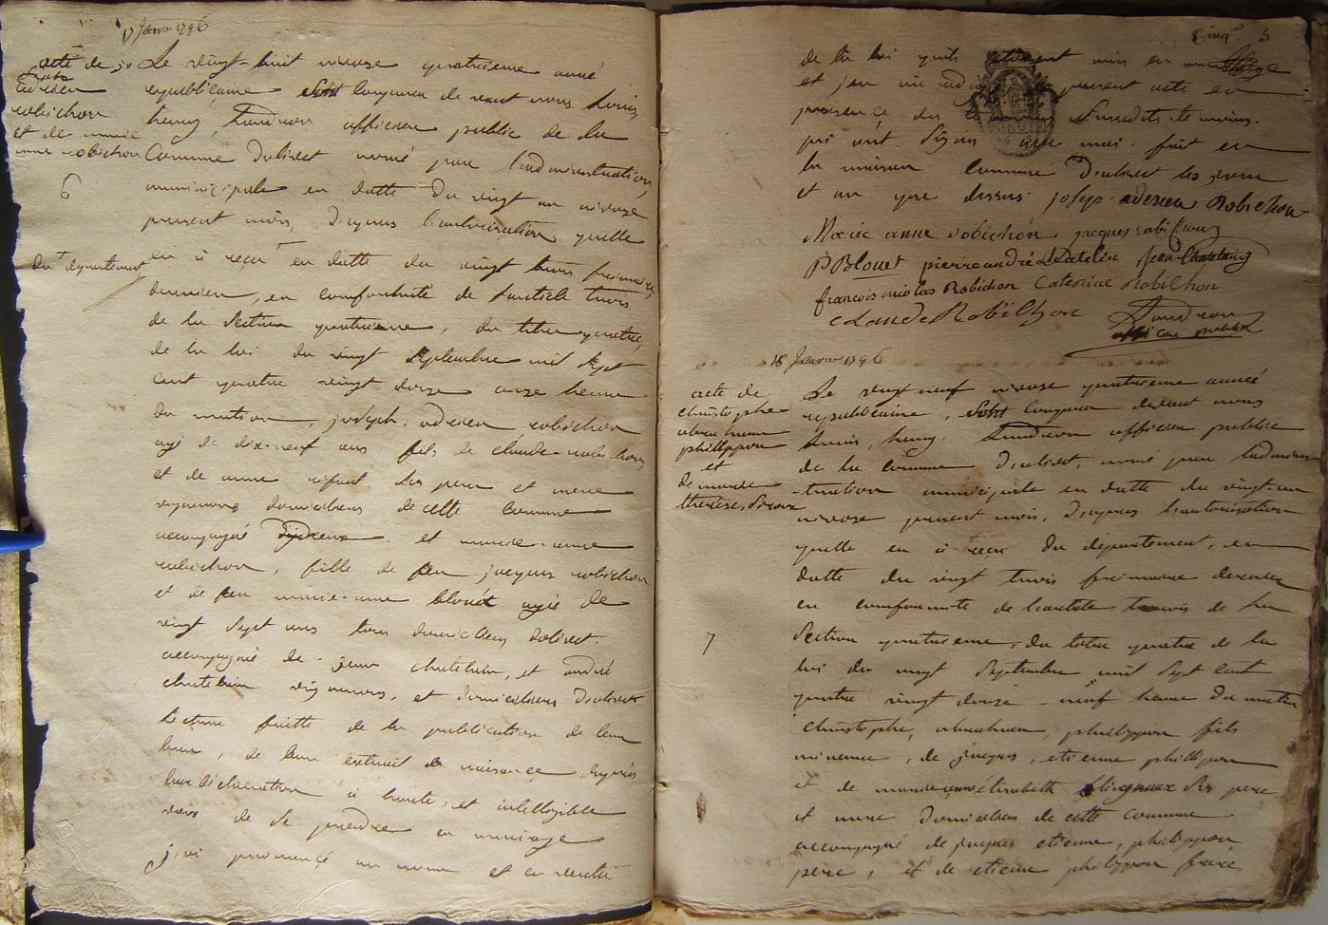 17 Janvier 1796
acte de jo
adrien
robichon
et de marie
anne robichon
6
Le vingt-huit nivose quatrieme année
republicaine sont comparu devant nous Louis
henry, officier public de la
Commune nomé par l'administration
municipale en datte du vingt un nivose
present mois, d'apres l'autorisation quelle
en à reçu en datte du vingt trois frimaire
du departement
dernier, en conformité de l'article trois
de la section quatrieme, du titre quatre,
de la loi du vingt septembre mil sept
cent quatre vingt douze onze heure
du matin, joseph adrien robichon
agé de dix-neuf ans fils de claude robichon
et de anne ses pere et mere
vignerons domicilies de cette commune
accompagné et marie-anne
robichon, fille de feu jacques robichon
et de feu marie-anne blouet agée de
vingt sept ans tous domicilies
accompagné de jean chatelain, et andré
chatelain vignerons, et domicilies
lecture faitte de la publication de leur
de leur extrait de naisance apres
leur déclaration à haute et intelligible
voix de se prendre en mariage
j'ai prononcé au nom
cinq 5
de la loi quils etoient unis en
et jen ai present acte en
presence des susdits temoins
qui ont signé avec moi. fait en
la maison commune les jour
et an que dessus joseph adrien Robichon
Marie anne robichon jacques robichon
P Blouet pierre andré jean Chatelain
françois nicolas Robichon Caterine Robichon
claude Robichon
officier public
18 Janvier 1796
acte de
christophe
abraham
philippon
et
de marie
therèse
7
Le vingt neuf nivose quatrieme année
republicaine, sont comparu devant nous
Louis, henry, officier public
de la commune nomé par ladminis
-tration municipale en datte du vingt-un
nivose present mois, d'apres l'autorisation
quelle en à recu du département, en
datte du vingt trois frimaire dernier
en conformité de l'article trois de la
section quatrieme, du titre quatre de la
loi du vingt septembre mil sept cent
quatre vingt douze neuf heure du matin
christophe, abraham, philippon fils
mineure, de jacques, etienne philippon
et de marie anne élisabeth ses pere
et mere domicilies de cette commune
accompagné de jacques etienne, philippon
pere, et de etienne philippon frere